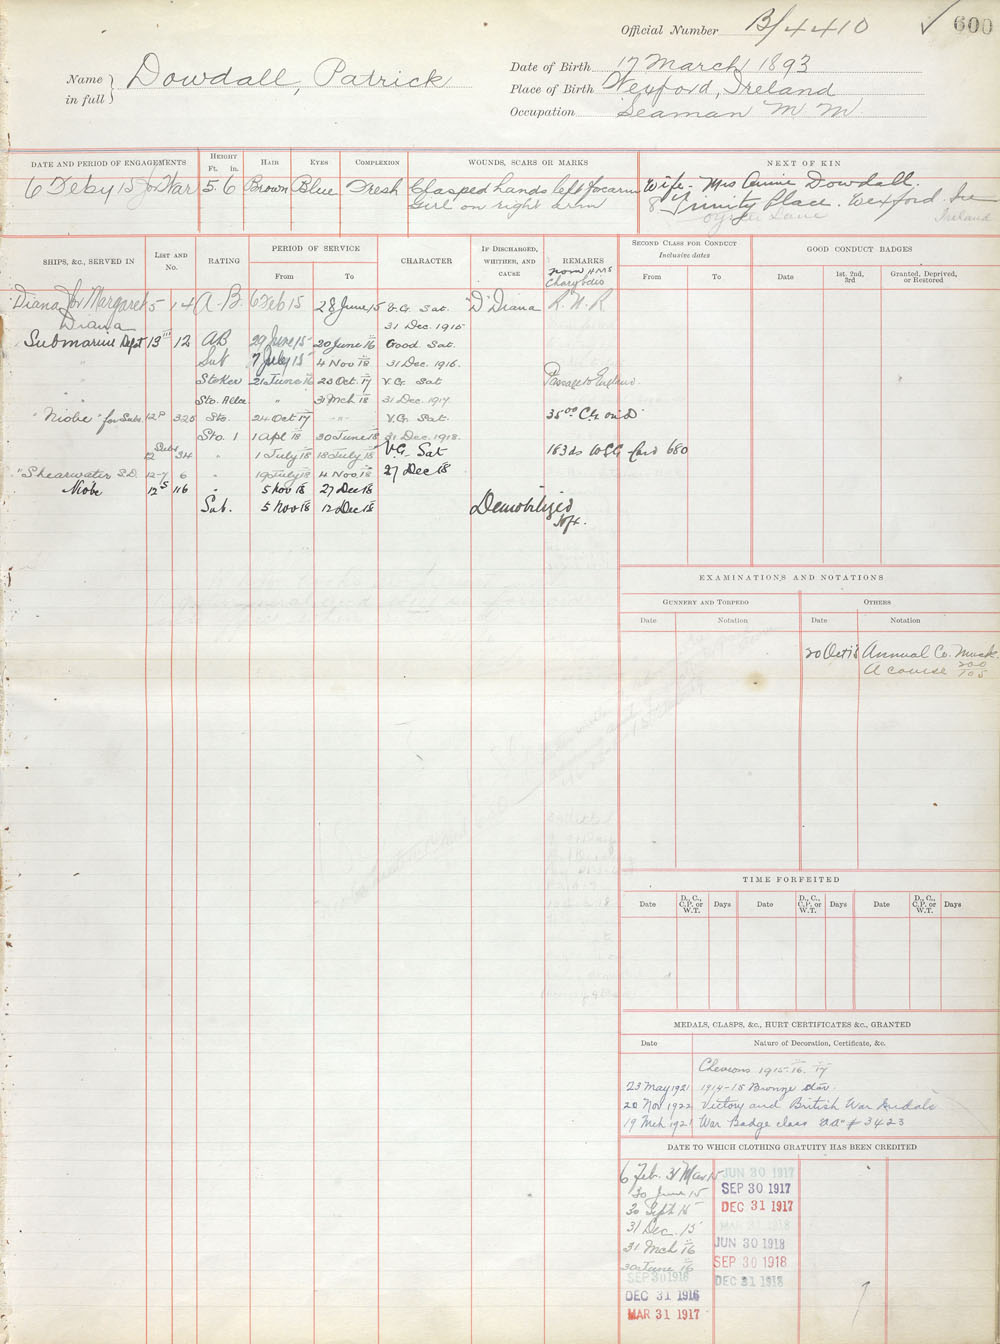 Official Number B/4410 ✓ 600
Name in full } Dowdall, Patrick
Date of Birth 17 March 1893
Place of Birth Wexford, Ireland
Occupation Seaman M. M.
DATE AND PERIOD OF ENGAGEMENTS HEIGHT Ft. in. HAIR EYES COMPLEXION WOUNDS, SCARS OR MARKS NEXT OF KIN
6 Feby 15 for War 5. 6 Brown Blue Fresh Clasped hands left forearm
Girl on right arm
Wife - Mrs Annie Dowdall.
8 Trinity Place. Wexford. Ire
Oyster Lane Ireland
SHIPS, &c., SERVED IN LIST AND No. RATING PERIOD OF SERVICE From To CHARACTER IF DISCHARGED, WHITHER, AND CAUSE REMARKS
from HMS
Charybdis
"Diana for Margaret 5 14 A. B. 6 Feb 15 28 June 15 V.G. Sat. "D" Diana R. N. R
Diana 31 Dec. 1915
Submarine Dept 13 12 AB 29 June 15 20 June 16 Good Sat.
" Sub 7 July 15 4 Nov 18 31 Dec. 1916.
" Stoker 21 June 16 23 Oct. 17 V.G. Sat Passage to England
" Sto. " 31 Mch 18 31 Dec. 1917
"Niobe" for Subs. 12 P 325 Sto. 24 Oct 17 - V.G. Sat. 35 on D
Sto. 1 1 Apl 18 30 June 18 31 Dec. 1918.
12 Subs 34 " 1 July 18 18 July 18 V.G. Sat 183 ds WCG Card 680
"Shearwater S.D. 12-7 6 " 19 July 18 4 Nov 18 27 Dec 18
Niobe 12 S 116 " 5 Nov 18 27 Dec 18
Sub. 5 Nov 18 12 Dec 18 Demobilized
Hfx.
SECOND CLASS FOR CONDUCT
Inclusive dates
From To
GOOD CONDUCT BADGES
Date 1st, 2nd, 3rd Granted, Deprived, or Restored
EXAMINATIONS AND NOTATIONS
GUNNERY AND TORPEDO OTHERS
Date Notation Date Notation
20 Oct 18 Annual Co. Musk.
A course 200
105
TIME FORFEITED
Date D., C., C.P. or W.T. Days Date D., C., C.P. or W.T. Days Date D., C., C.P. or W.T. Days
MEDALS, CLASPS, &c., HURT CERTIFICATES &c., GRANTED
Date Nature of Decoration, Certificate, &c.
Chevrons 1915. 16. 17
23 May 1921 1914-15 Bronze Star.
20 Nov 1922 Victory and British War Medals
19 Mch 1921 War Badge class "AA" # 3423
DATE TO WHICH CLOTHING GRATUITY HAS BEEN CREDITED
6 Feb. 31 Mar 15 JUN 30 1917
30 June 15 SEP 30 1917
30 Sept 15 DEC 31 1917
31 Dec. 15 MAR 31 1918
31 Mch 16 JUN 30 1918
30 June 16 SEP 30 1918
SEP 30 1916 DEC 31 1918
DEC 31 1916
MAR 31 1917